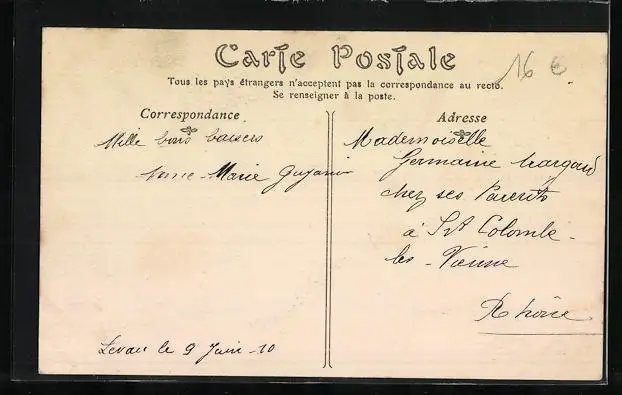 Carte Postale
16 €
Tous les pays étrangers n'acceptent pas la correspondance au recto.
Se renseigner à la poste.
Correspondance
Mille bons baisers
Anne-Marie
Levau le 9 Juin-10
Adresse
Mademoiselle
Germaine
chez ses Parents
à Ste Colombe-
les-Vienne
Rhône